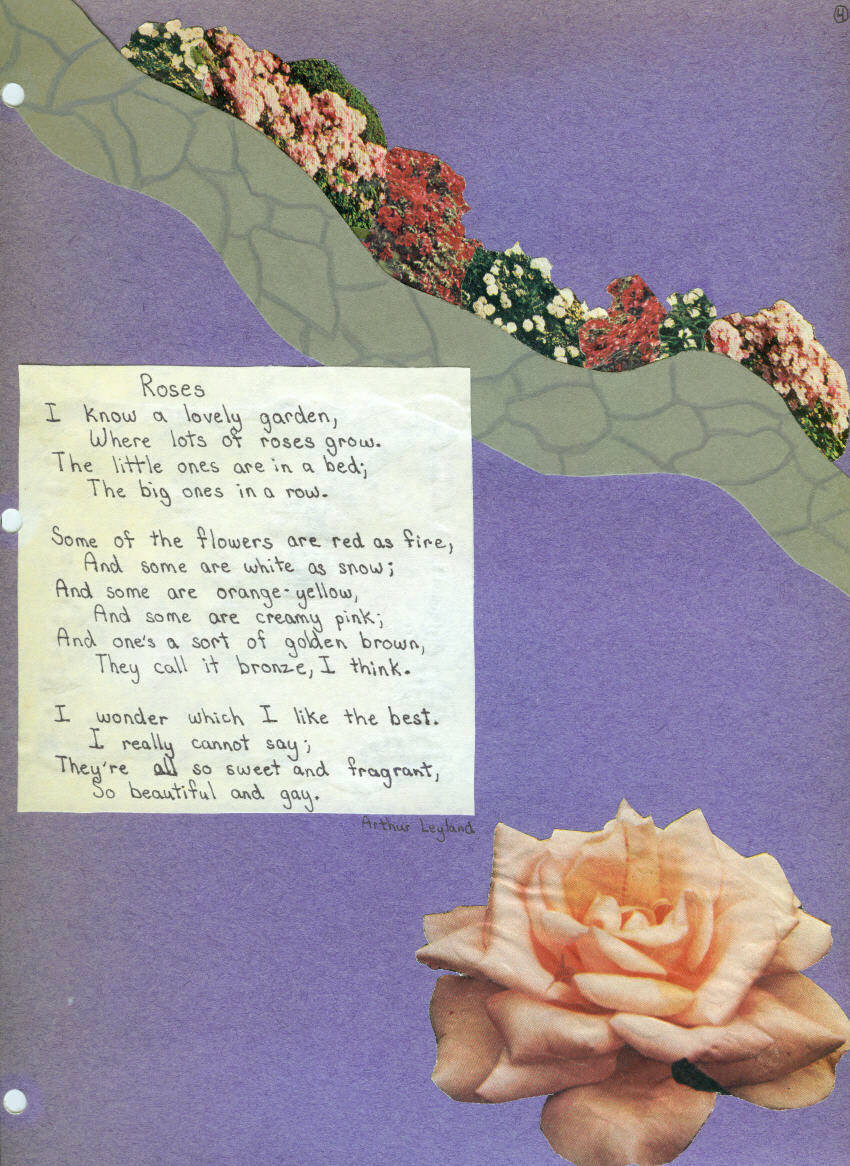 4
Roses
I know a lovely garden,
Where lots of roses grow.
The little ones are in a bed;
The big ones in a row.
Some of the flowers are red as fire,
And some are white as snow;
And some are orange-yellow,
And some are creamy pink;
And one's a sort of golden brown,
They call it bronze, I think.
I wonder which I like the best.
I really cannot say;
They're all so sweet and fragrant,
So beautiful and gay.
Arthur Leyland